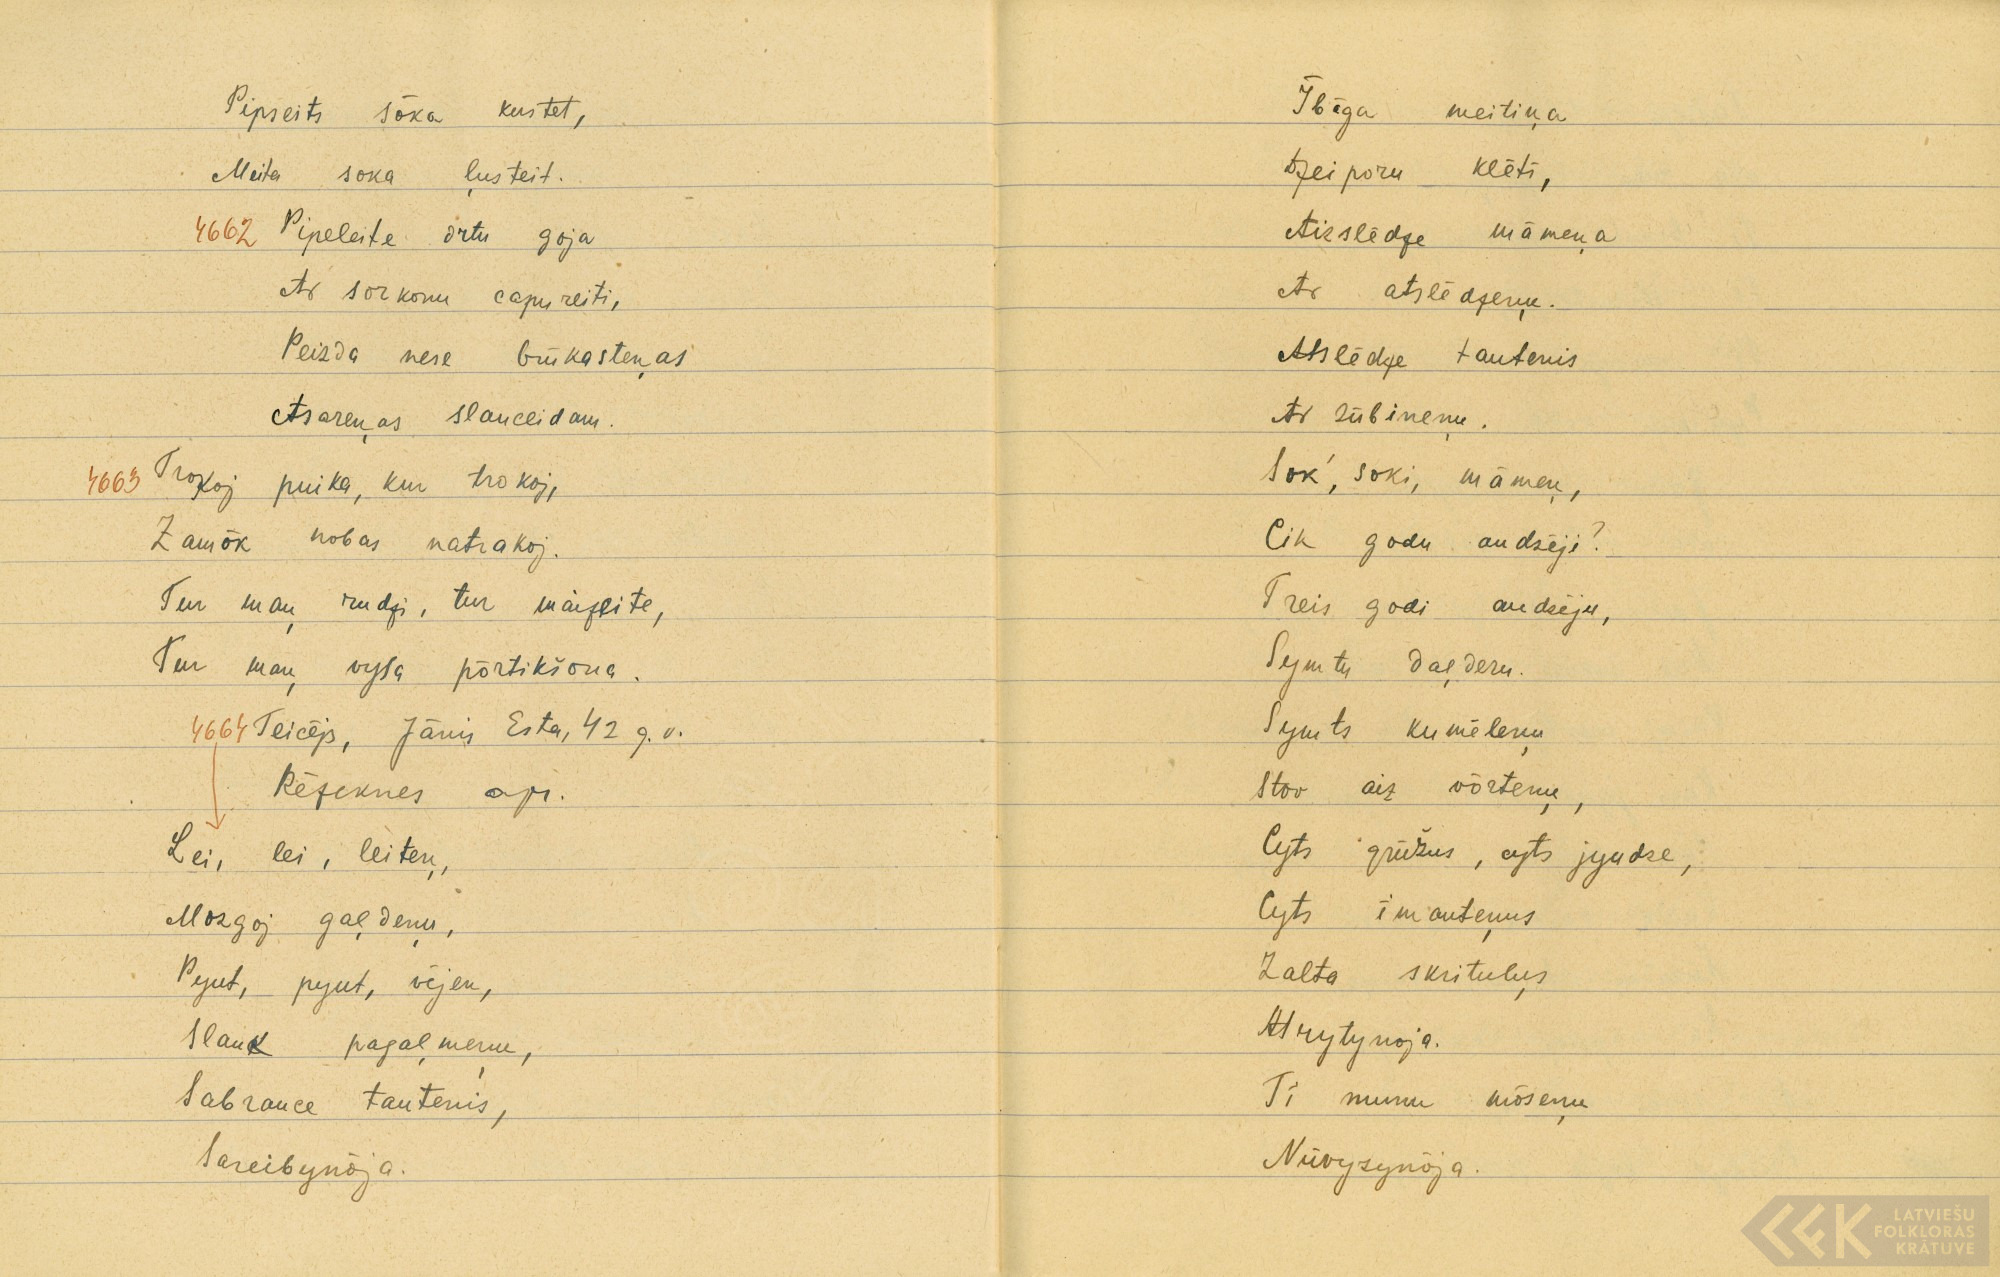 Pipseits sōka kustet,
Meita soka ļusteit.
4662 Pipeleite ōrtu goja
Ar sorkonu capureiti,
Peizda nese būkasteņas
Asareņas slauceidam.
4663 Trokoj puika, kur trokoj,
Zamōk nobas natrakoj.
Tur maņ rudzi, tur maizeite,
Tur maņ vysa pōrtikšona.
4664 Teicējs, Jānis Esta, 42 g. v.
Rēzeknes apr.
Lei, lei, leiteņ,
Mozgoj gaļdeņu,
Pyut, pyut, vējeņ,
Slauk pagaļmeņu,
Sabrauce tautenis,
Sareibynōja.
Ībēga meitiņa
Dzeiporu klētī,
Aizslēdze māmeņa
Ar atslēdzeņu.
Atslēdze tautenis
Ar zūbineņu.
Sok', soki, māmeņ,
Cik godu audzēji?
Treis godi audzēju,
Symtu daļderu.
Symts kumēleņu
Stov aiz vōrteņu,
Cyts grūžus, cyts jyudze,
Cyts īmauteņus
Zalta skrituļus
Atrytynoja.
Tī munu mōseņu
Nūvyzynōja.
LATVIEŠU
FOLKLORAS
KRĀTUVE